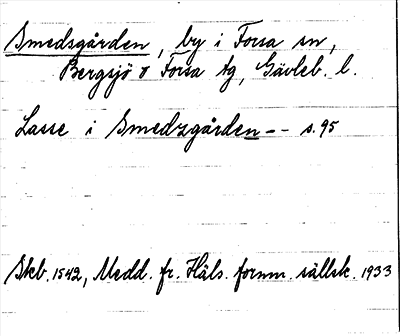 Smedsgården, by i Forsa sn,
Bergsjö o Forsa tg, Gävleb. l.
Lasse i Smedzgården -- s. 95
Skb. 1542, Medd. fr. Häls. fornm. sällsk. 1933